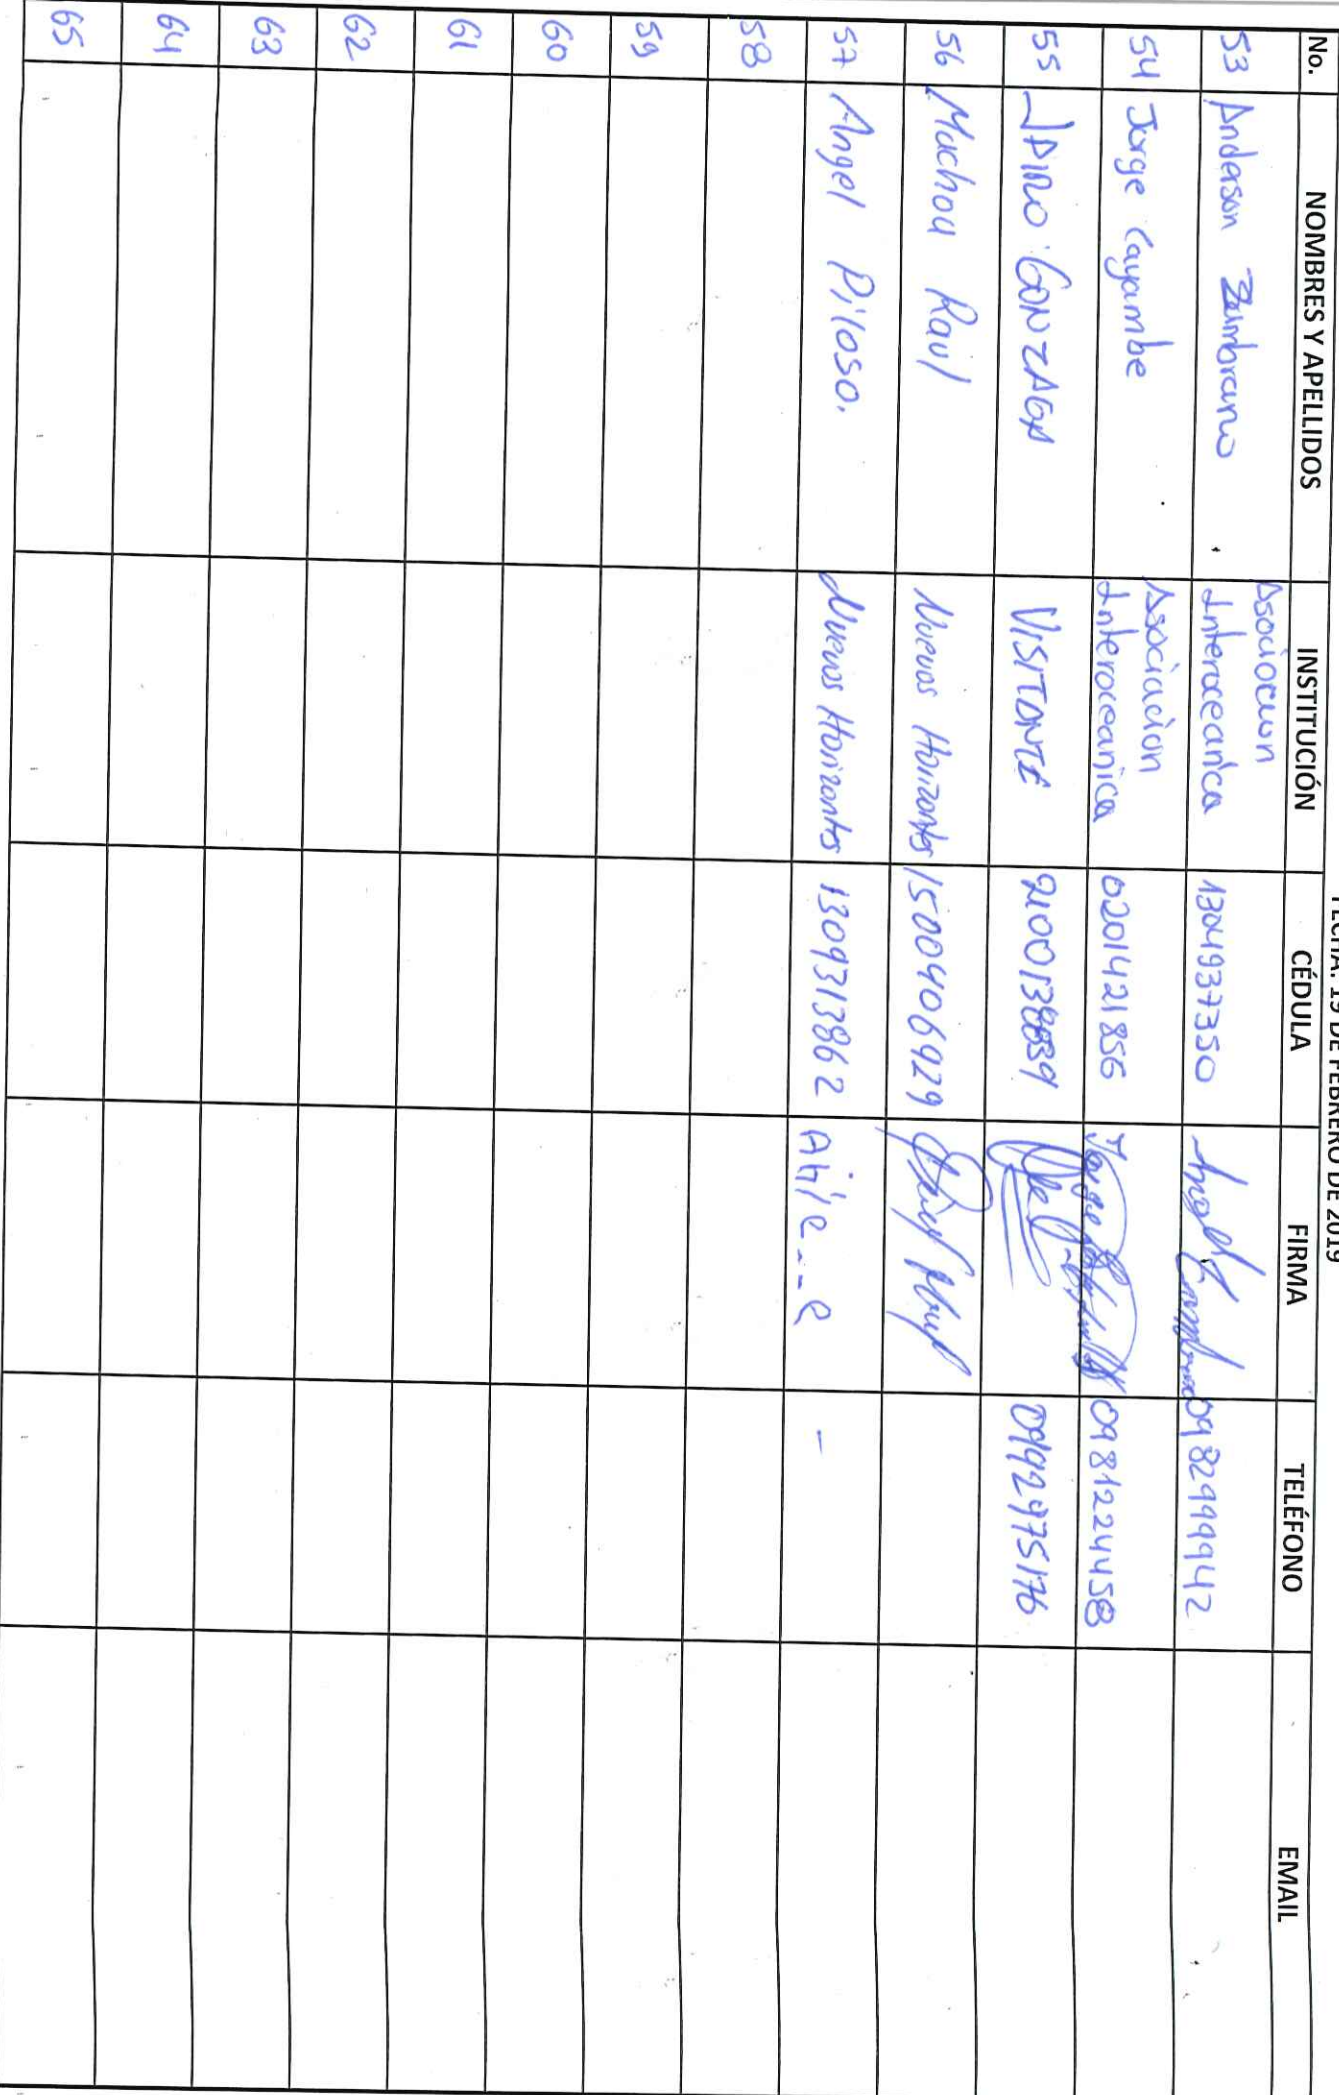 FECHA: 15 DE FEBRERO DE 2019
No. NOMBRES Y APELLIDOS INSTITUCIÓN CÉDULA FIRMA TELÉFONO EMAIL
53 Anderson Zambrano Asociacion Interoceanica 1304937350 0982999942
54 Jorge Cayambe Asociacion Interoceanica 0201421856 Jorge 0981224458
55 JAIRO GONZAGA VISITANTE 0992975176
56 Machoa Raul Nuevos Horizontes 1500406929
57 Angel Piloso. Nuevos Horizontes 1309313862 –
58
59
60
61
62
63
64
65